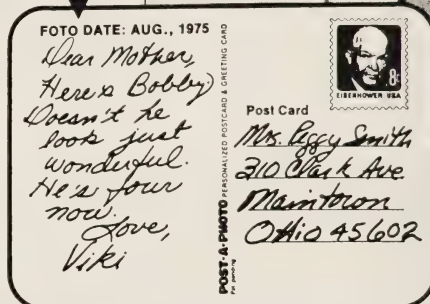 FOTO DATE: AUG., 1975
Dear Mother,
Here's Bobby
Doesn't he
look just
wonderful.
He's four
now.
Love,
Viki
POST-A-PHOTO PERSONALIZED POSTCARD & GREETING CARD
Pat. pending
EISENHOWER USA
8c
Post Card
Mrs. Peggy Smith
310 Clark Ave
Maintown
Ohio 45602